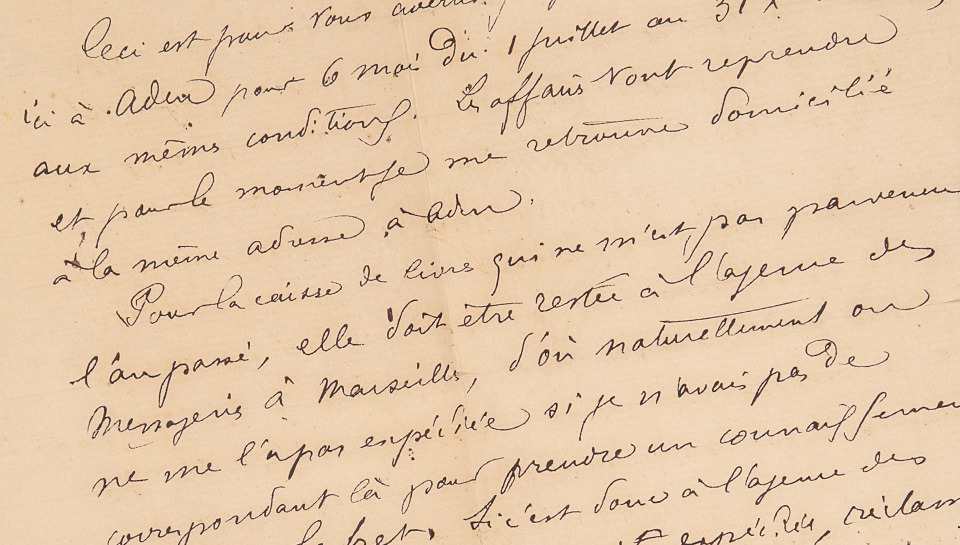 Ceci est pour vous avertir
ici à Aden pour 6 mois du 1 juillet au 31 X
aux mêmes conditions. Les affaires vont reprendre
et pour le moment je me retrouve domicilié
à la même adresse à Aden.
Pour la caisse de livres qui ne m'est pas parvenue
l'an passé, elle doit être restée à l'agence des
Messageries à Marseille, d'où naturellement on
ne me l'a pas expédiée si je n'avais pas de
correspondant là pour prendre un connaissemen
fret. Si c'est donc à l'agence des
expédiée, réclam